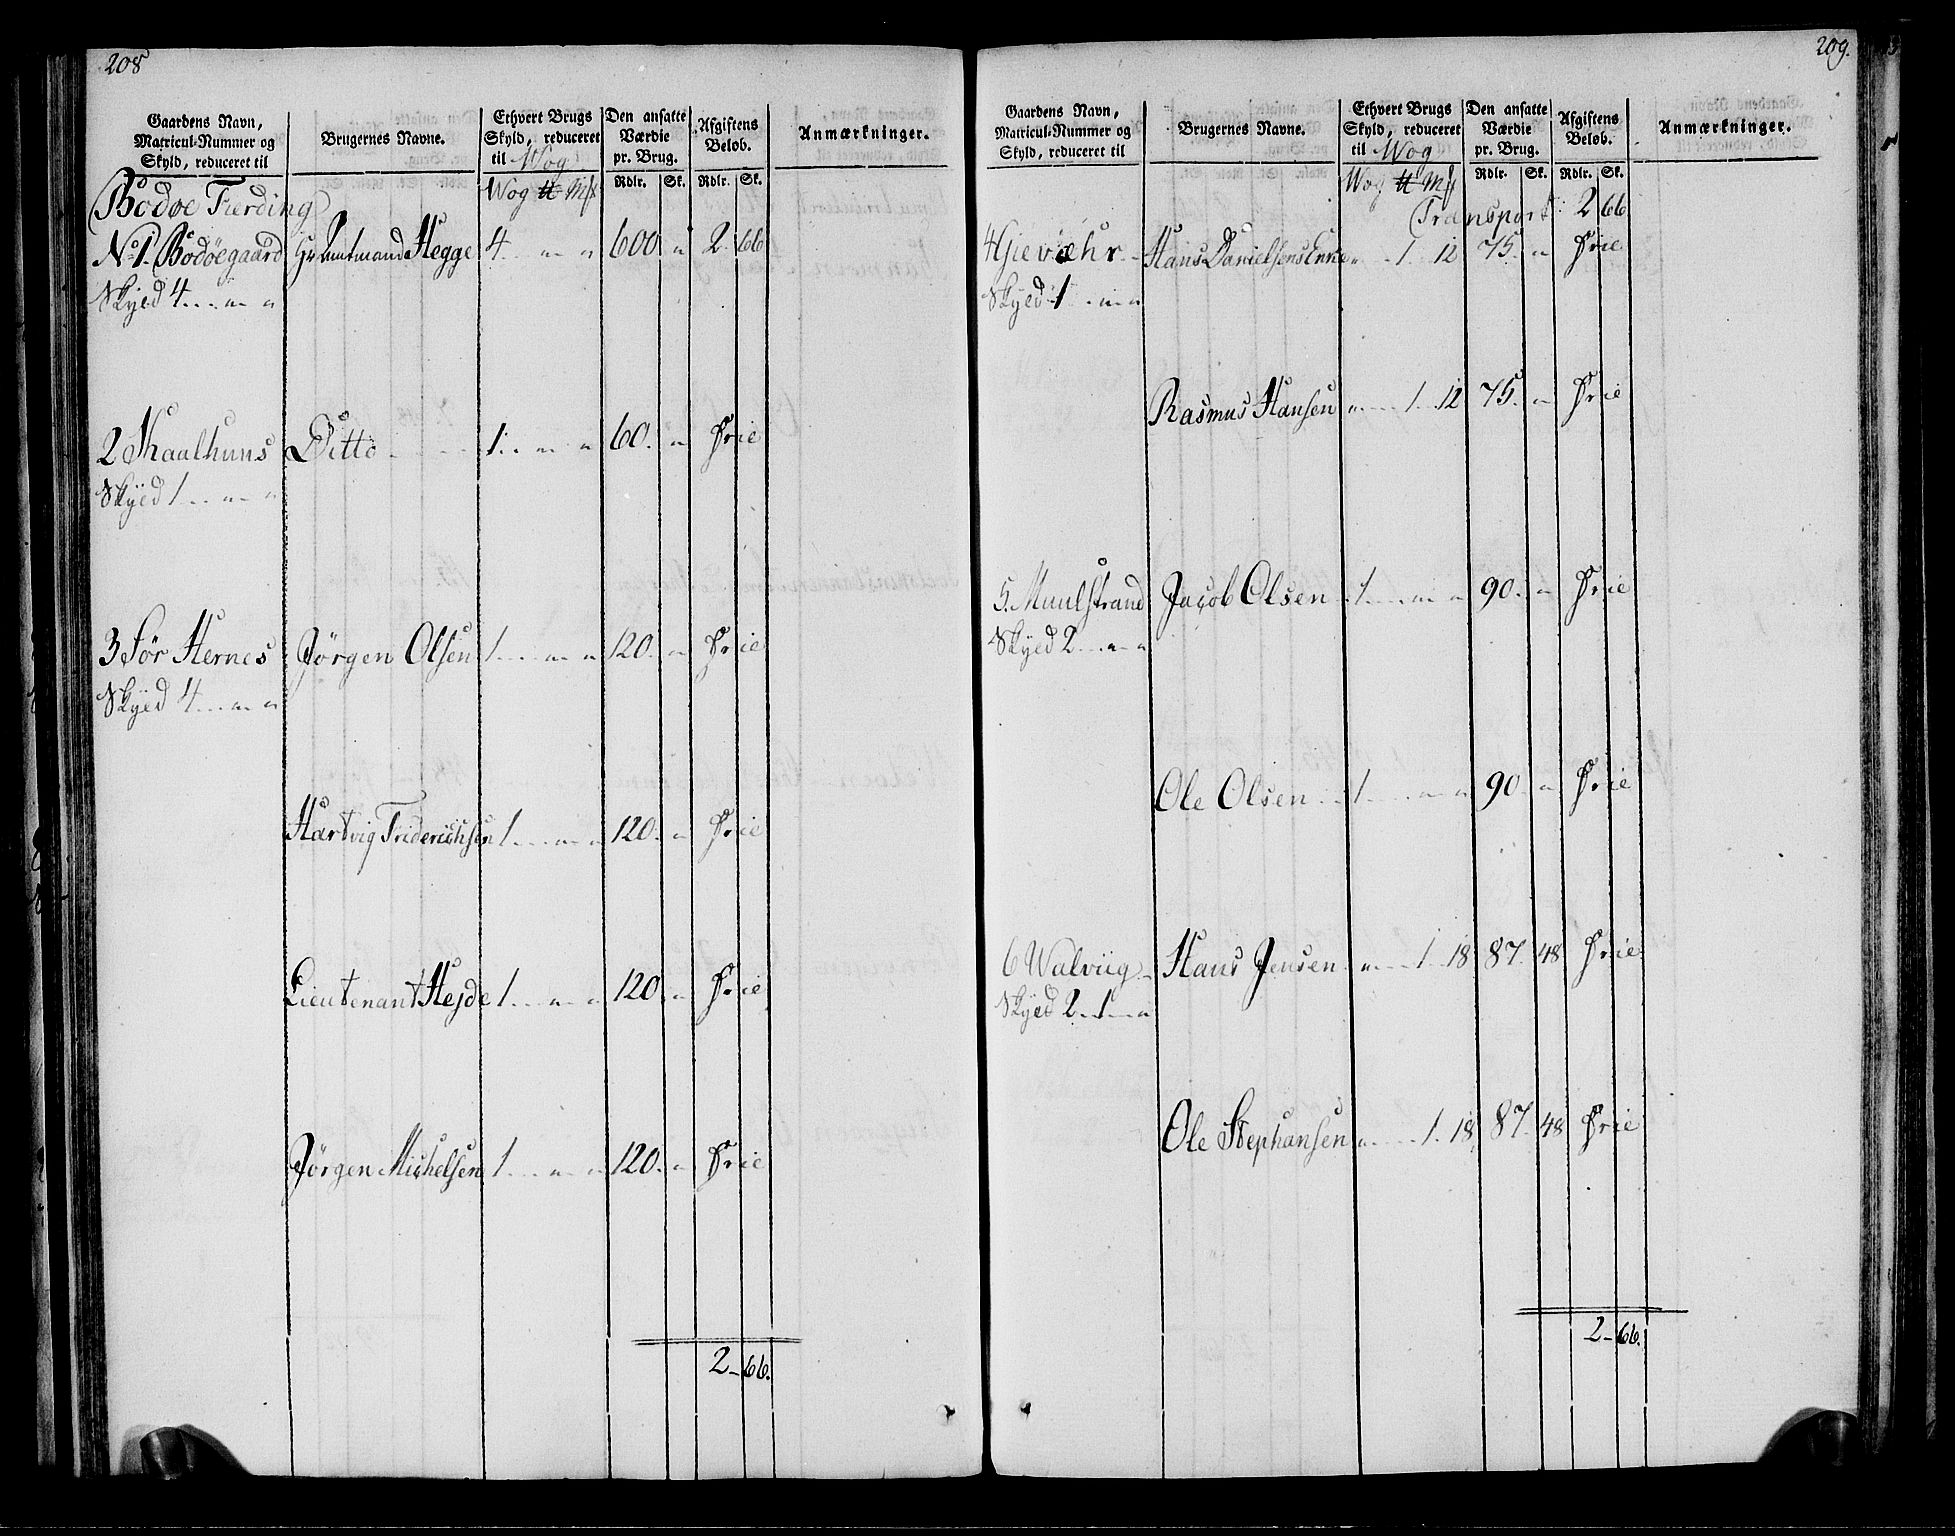 208
Gaardens Navn, Matricul-Nummer og Skyld, reduceret til | Brugernes Navne. | Ethvert Brugs Skyld, reduceret til Wog | Den ansatte Værdie pr. Brug. | Afgiftens Beløb. | Anmærkninger.
Wog ℔ Mk | Rdlr. | Sk. | Rdlr. | Sk.
Bodøe Fierding
No 1. Bodøegaard | Hr Amtmand Hegge | 4 . . " " | 600 " | 2 66
Skyed 4 . . . " "
2 Skaalhuns | Ditto | 1 . . " " | 60. " | Frie
Skyed 1 . . . " "
3 Sør Hernes | Jørgen Olsen | 1 . . . " " | 120. " | Frie
Skyed 4 . . . " "
Hartvig Friderichsen | 1 . . . " " | 120. " | Frie
Lieutenant Hejde | 1 . . . " " | 120. " | Frie
Jørgen Michelsen | 1 . . . " " | 120. " | Frie
2 - 66.
209.
Gaardens Navn, Matricul-Nummer og Skyld, reduceret til | Brugernes Navne. | Ethvert Brugs Skyld, reduceret til Wog | Den ansatte Værdie pr. Brug. | Afgiftens Beløb. | Anmærkninger.
Wog ℔ Mk | Rdlr. | Sk. | Rdlr. | Sk.
Transport: 2 66
4 Gjeværhr | Hans Danielsens Enke | " . . 1 . 12 | 75. " | Frie
Skyed 1 . . " "
Rasmus Hansen | " . . . 1 . . 12 | 75. " | Frie
5. Muulstrand | Jacob Olsen | 1 . . . " " | 90. " | Frie
Skyed 2 . . . " "
Ole Olsen | 1 . . . " " | 90 " | Frie
6 Walviig | Hans Jensen | " . . . 1 . 18 | 87. 48 | Frie
Skyed 2 . . 1 . . . "
Ole Stephansen | " . . . 1 . 18 | 87. 48 | Frie
2 - 66.